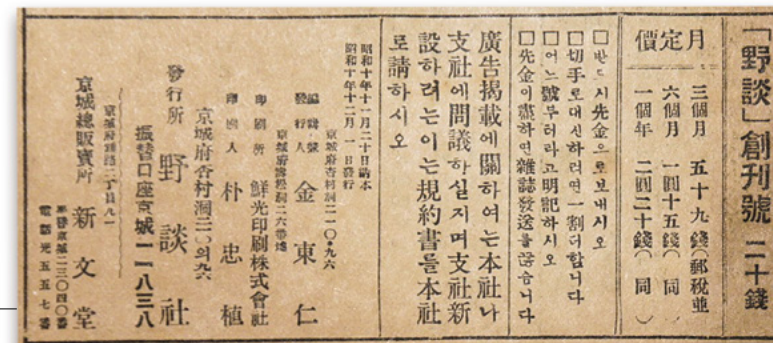 「野談」創刊號 二十錢
月定價
三個月 五十九錢(郵稅並)
六個月 一圓十五錢( 同 )
一個年 二圓二十錢( 同 )
□반드시先金으로보내시오
□切手로대신하려면一割더합니다
□어느號부터라고明記하시오
□先金이盡하면雜誌發送을끊습니다
廣告揭載에關하여는本社나
支社에問議하실지며支社新
設하려는이는規約書를本社
로請하시오
昭和十年十一月二十日納本
昭和十年十二月 一日發行
京城府杏村洞二一〇·九六
編輯兼
發行人 金東仁
京城府壽松洞二六番地
印刷所 鮮光印刷株式會社
印刷人 朴忠植
京城府杏村洞二一〇의九六
發行所 野談社
振替口座京城一一八三八
京城府
京城總販賣所 新文堂
振替京城二三〇四〇番
電話光五五七番